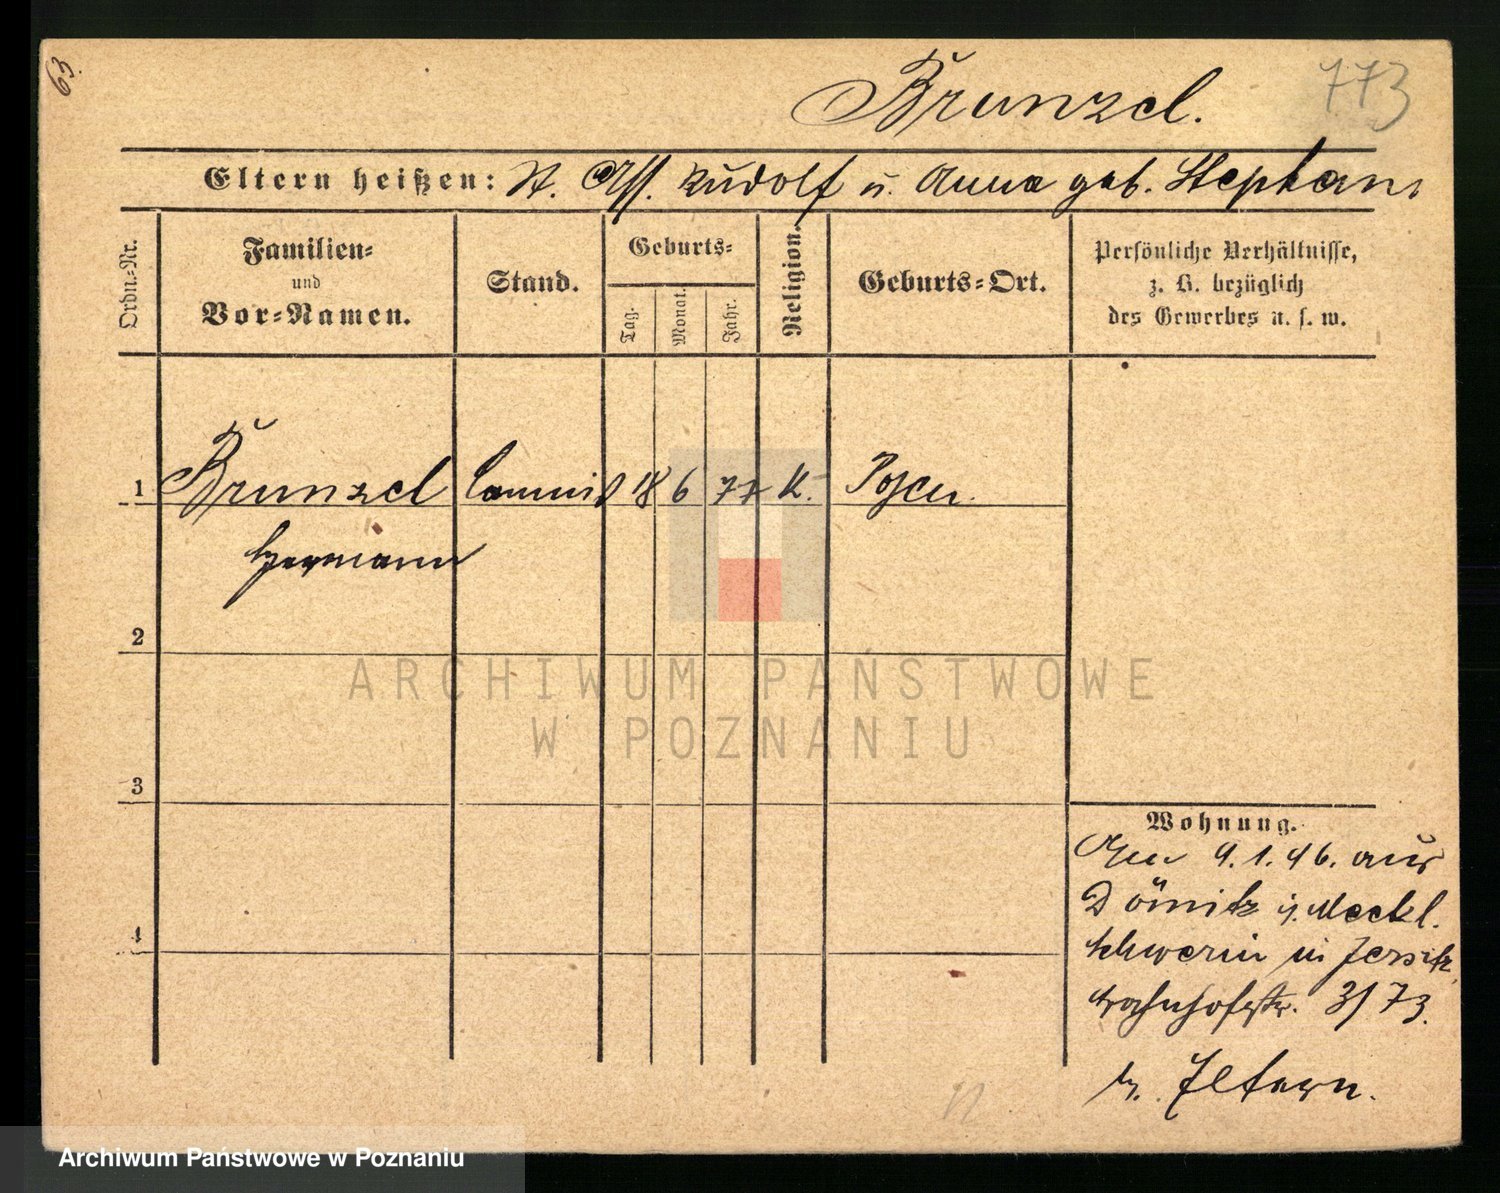 63.
773
Brunzel.
Eltern heißen: St. Ass. Rudolf u. Anna geb. Stephan
Ordn.-Nr.
Familien-
und
Vor-Namen.
Stand.
Geburts-
Tag.
Monat.
Jahr.
Religion.
Geburts-Ort.
Persönliche Verhältnisse,
z. B. bezüglich
des Gewerbes u. s. w.
1 Brunzel Commis 18 6 77 K. Posen.
Hermann
2
3
4
Wohnung.
1.96. aus
Dömitz i/ Meckl.
Schwerin in Jersitz
Bahnhofstr. 3/73.
b. Eltern.
ARCHIWUM PAŃSTWOWE
W POZNANIU
Archiwum Państwowe w Poznaniu